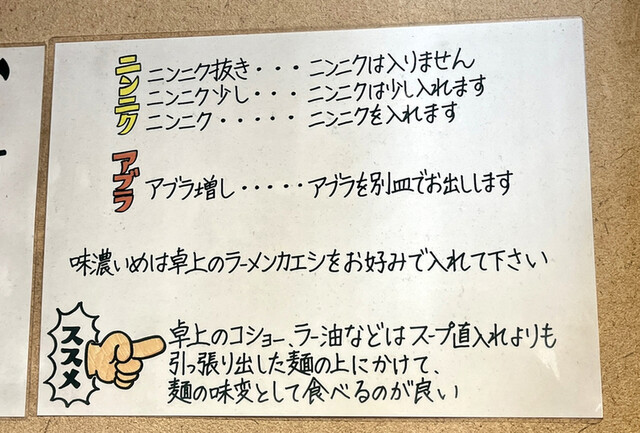 ニンニク
ニンニク抜き・・・ニンニクは入りません
ニンニク少し・・・ニンニクは少し入れます
ニンニク・・・・・ニンニクを入れます
アブラ
アブラ増し・・・・・アブラを別皿でお出しします
味濃いめは卓上のラーメンカエシをお好みで入れて下さい
ススメ
卓上のコショー、ラー油などはスープ直入れよりも
引っ張り出した麺の上にかけて、
麺の味変として食べるのが良い